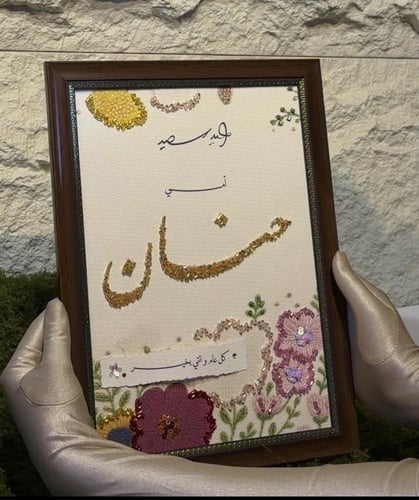 عيد سعيد
أمي
حنان
كل عام و انتي بخير